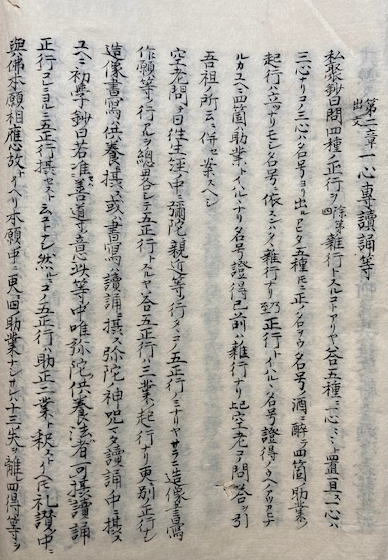 第二章 一心專讀誦等
出文
私聚鈔曰問四種ノ正行ヲ除第四雜行トスルコトアリヤ答五種ニ一心ニ ニ四置一旦一心ハ
三心ナリコノ三心ハ名号ヨリ出ルユヘタ五種ヒ正ナヲウ名号ノ酒ニ醉ラ四箇助業ノ
起行ハ立ツナリモシ名号ニ依スンハ 雜行ナリ 正行トイヘルハ名号證得ノウヘ
ルカユヘニ四箇ハ助業トイヘルナリ名号證得已前ハ雜行ナリ 空老ヨリ問答ヲ引
吾祖ノ所云ニ併セ案スヘシ
空老問曰往生經ノ中ニ彌陀親近等行多シコノ五正行ノミナリヤサラニ造像書寫
作願等ノ行アルヲ總畧シテ五正行トスルヤ答五正行ハ三業ノ起行ナリ更別正行ナシ
造像書寫ハ供養ニ攝ス或ハ書寫ハ讀誦ニ攝ス弥陀神呪マタ讀誦ノ中ニ攝ス
ユヘニ初學鈔曰若准善導意此等中唯弥陀供養法者可攝讀誦
正行コレニヨルニ五正行攝セスト云コトナシ然ルニコノ五正行ハ助正二業ト釈スイヘヒ礼讃中ニ
與佛本願相應故トイヘリ本願中ニ更ニ四ノ助業ナシサレハ十三失ヲ離四得等ヲ